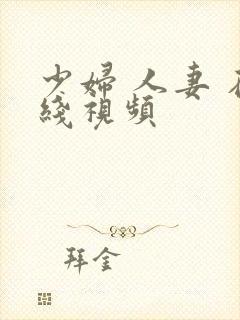 少婦 人妻 在
綫視頻
拜金